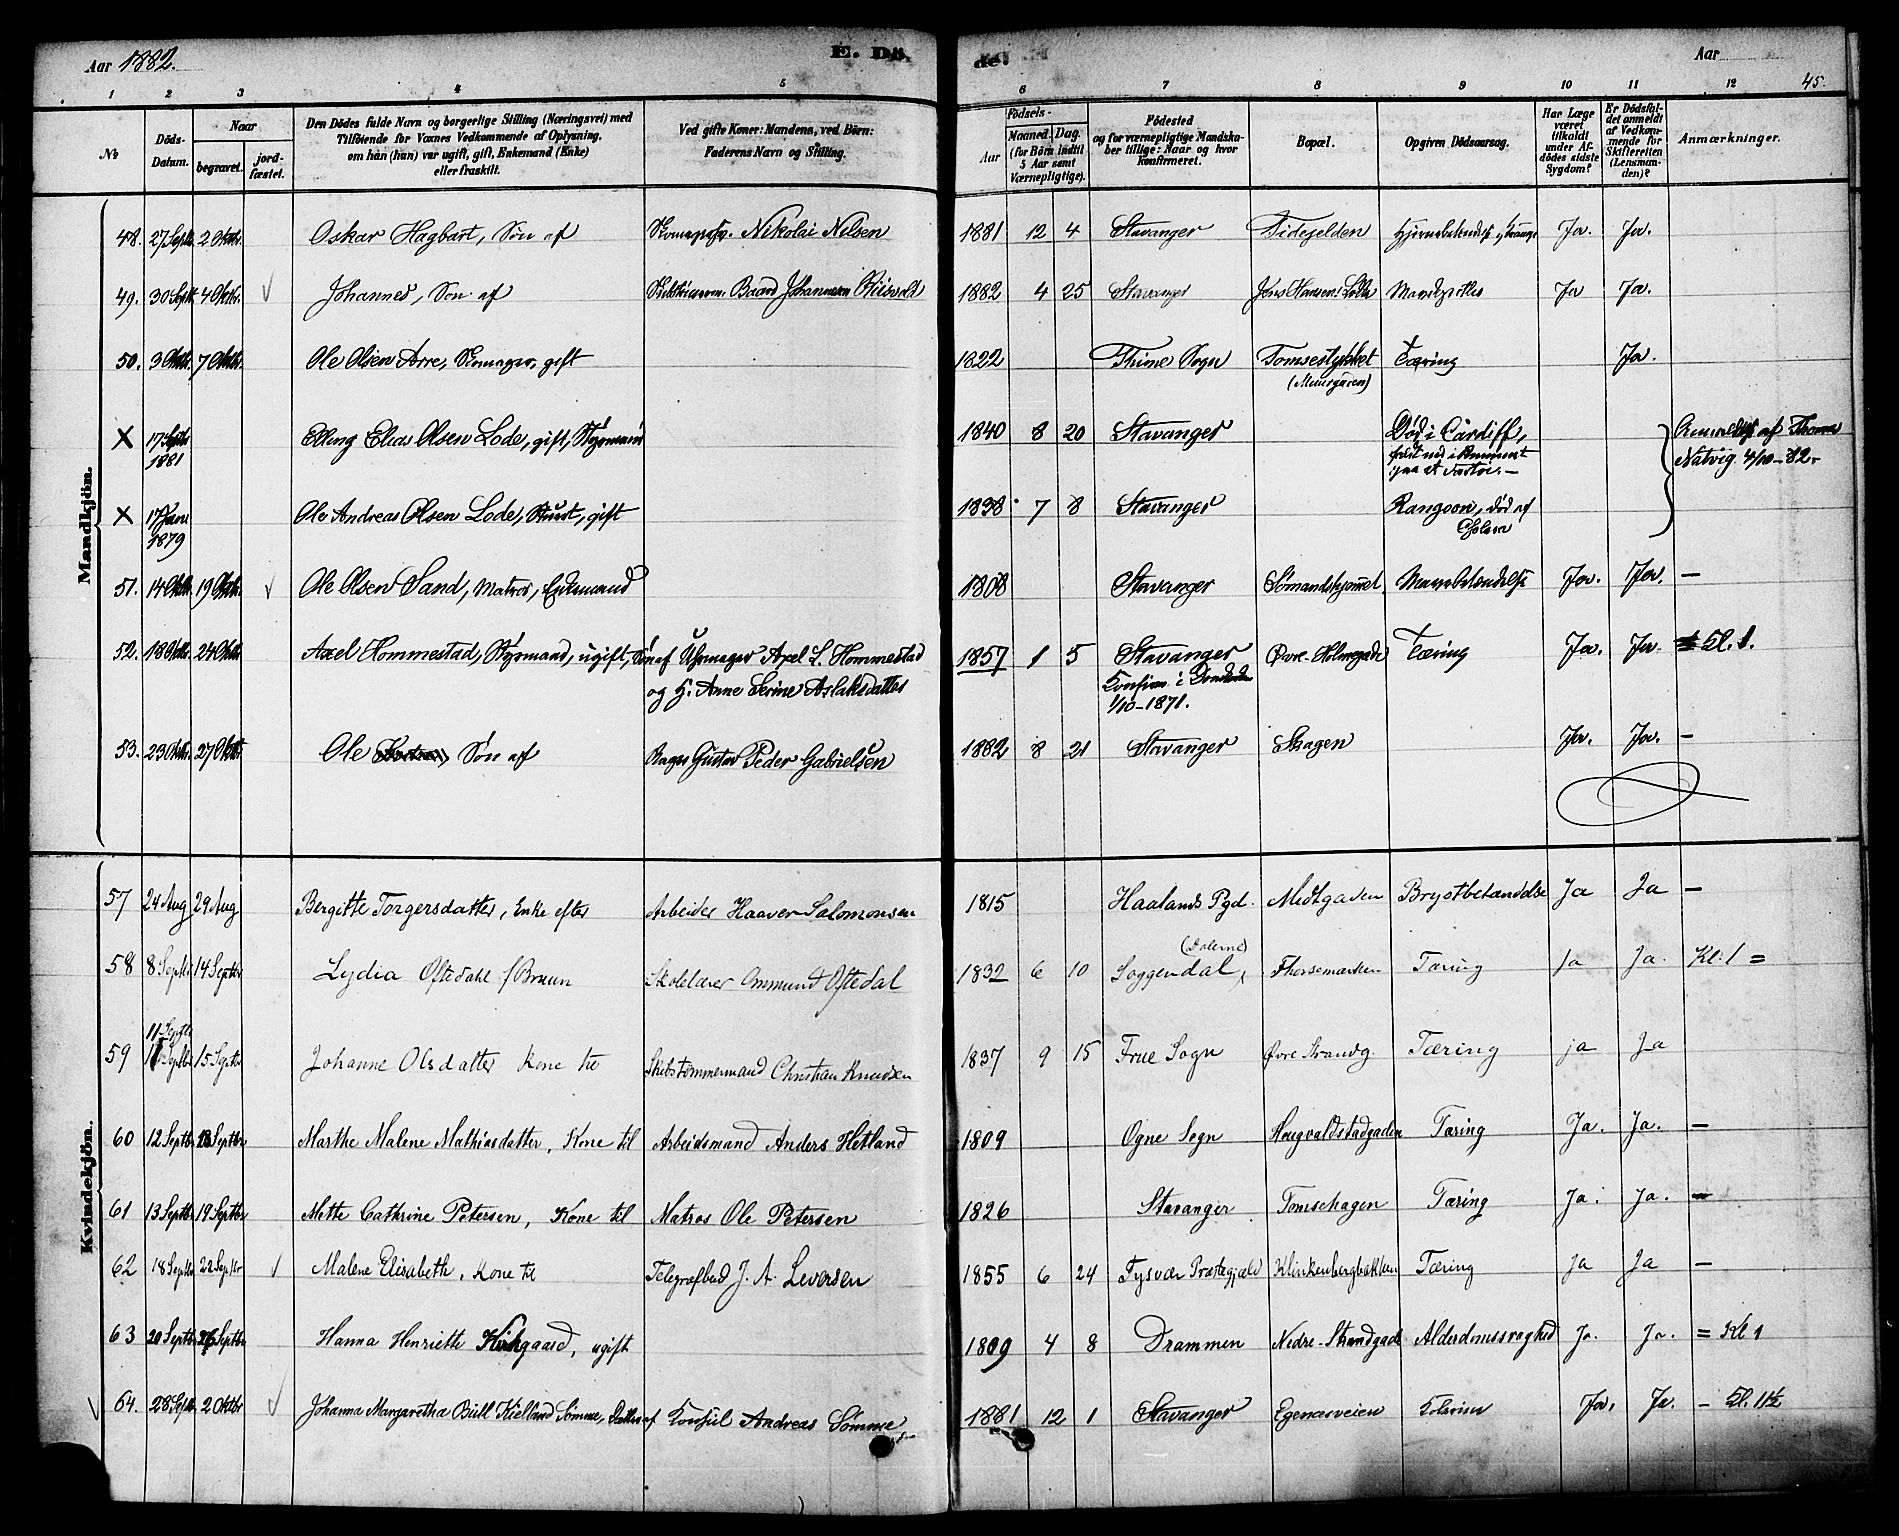 Aar 1882. E. Dö- de. Aar
45.
1 2 3 4 5 6 7 8 9 10 11 12
No Döds-Datum. Naar begravet. jordfæstet. Den Dödes fulde Navn og borgerlige Stilling (Næringsvei) med Tilföiende for Voxnes Vedkommende af Oplysning, om han (hun) var ugift, gift, Enkemand (Enke) eller fraskilt. Ved gifte Koner: Mandens, ved Börn: Faderens Navn og Stilling. Födsels- Aar Maaned. Dag. (for Börn indtil 5 Aar samt Værnepligtige). Födested og for værnepligtige Mandskaber tillige: Naar og hvor Konfirmeret. Bopæl. Opgiven Dödsaarsag. Har Læge været tilkaldt under Afdödes sidste Sygdom? Er Dödsfaldet anmeldt af Vedkommende for Skifteretten (Lensmanden)? Anmærkninger.
Mandkjön.
48. 27 Septbr. 2 Oktbr. Oskar Hagbart, Søn af Nikolai Nilsen 1881 12 4 Stavanger Ja. Ja.
49. 30 Septbr 4 Oktbr. Johannes, Søn af Baard Johannesen 1882 4 25 Stavanger Jens Hansens Ja Ja.
50. 3 Oktbr. 7 Oktbr. Ole Olsen Arre, Skomager, gift 1822 Thime Sogn Tomsestykket Tæring Ja.
(Muurgaren)
X 17 Septbr Elling Elias Olsen Lode, gift, Styrmand 1840 8 20 Stavanger Død i Cardiff, af Thomas
1881 Natvig 4/10-82.
X 17 Janr Ole Andreas Olsen Lode, gift 1838 7 8 Stavanger Rangoon, død af
1879 Cholera
51. 14 Oktbr. 19 Oktbr. Ole Olsen Sand, Matros, Enkemand 1808 Stavanger Sømandshjemmet. Mavebetændelse Ja. Ja. —
52. 18 Oktbr. 24 Oktbr Axel Hommestad, Styrmand, ugift, Søn af Uhrmager Axel L. Hommestad 1857 1 5 Stavanger Øvre Holmegade Tæring Ja. Ja. Kl. 1.
og H. Anne Serine Aslaksdatter Konfirm. i Domkirken
1/10-1871.
53. 23 Oktbr. 27 Oktbr Ole Søn af Bager Gustav Peder Gabrielsen 1882 8 21 Stavanger Skagen Ja. Ja. —
Kvindekjön.
57 24 Aug 29 Aug Bergitte Torgersdatter, Enke efter Arbeider Haaver Salomonsen 1815 Haalands Pgd. Midtgaden Brystbetændelse Ja Ja —
58 8 Septbr 14 Septbr Lydia Oftedahl f Bruun Skolelærer Ommund Oftedal 1832 6 10 Soggendal, (Dalerne) Thorsemarken Tæring Ja Ja. Kl: 1 =
11 Septbr
59 Septbr 15 Septbr Johanne Olsdatter Kone til Skibstømmermand Christian Knudsen 1837 9 15 Frue Sogn Øvre Strandg. Tæring ja Ja
60 12 Septbr 18 Septbr Marthe Malene Mathiasdatter, Kone til Arbeidsmand Anders Hetland 1809 Ogne Sogn Hougvaldstadgaden Tæring Ja. Ja. —
61 13 Septbr 19 Septbr Mette Cathrine Petersen, Kone til Matros Ole Petersen 1826 Stavanger Tomsehagen Tæring Ja. Ja. —
62 18 Septbr 22 Septbr Malene Elisabeth, Kone til Telegrafbud J. A. Leversen 1855 6 24 Tysvær Præstegjæld Klinkenbergbakken Tæring Ja Ja —
63 20 Septbr 26 Septbr Hanna Henriette Kirkgaard, ugift 1809 4 8 Drammen Nedre Strandgade Alderdomssvaghed Ja. Ja. = Kl 1
64. 28 Septbr. 2 Oktbr Johanna Margaretha Bull Kielland Sømme, Datter af Konsul Andreas Sømme 1881 12 1 Stavanger Egenæsveien Kolerine Ja. Ja. — Kl. 11½